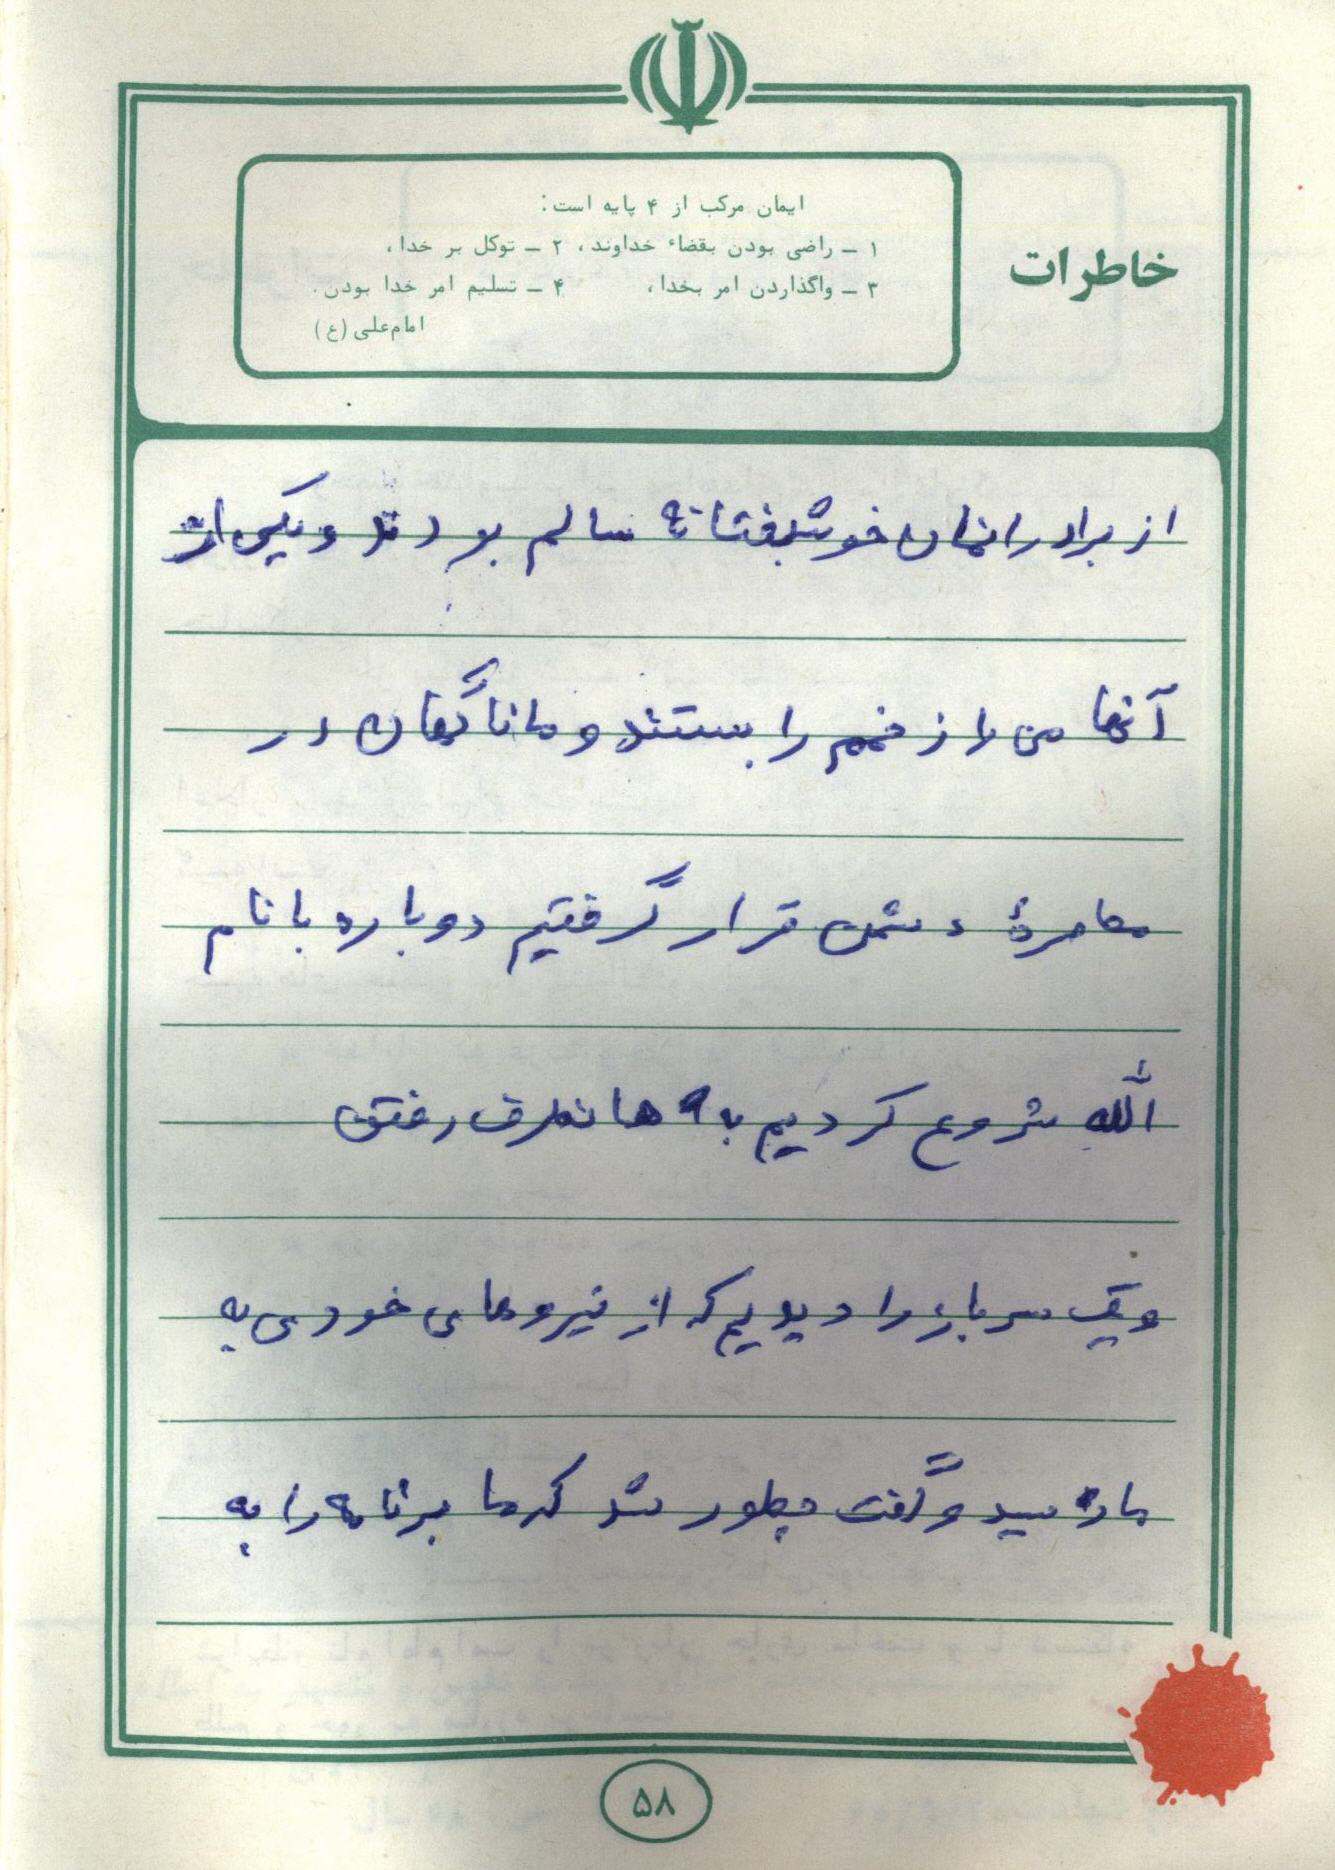 خاطرات
ایمان مرکب از ۴ پایه است:
۱ ــ راضی بودن بقضاء خداوند، ۲ ــ توکل بر خدا،
۳ ــ واگذاردن امر بخدا، ۴ ــ تسلیم امر خدا بودن.
امام‌علی (ع)
از برادرانمان خوشبختانه سالم بودند و یکی از
آنها من را زخمم را بستند و ما ناگهان در
محاصرهٔ دشمن قرار گرفتیم دوباره با نام
الله شروع کردیم به همانطرف رفتن
و یک سرباز را دیدیم که از نیروهای خودی به
ما رسید و گفت چطور شد که ما برنامه را به
۵۸